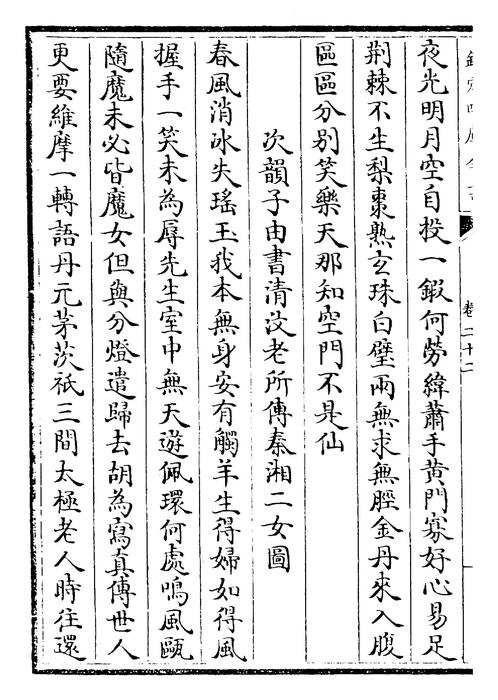 夜光明月空自投一鍜何勞緯蕭手黄門寡好心易足
荆棘不生梨棗熟玄珠白璧兩無求無脛金丹來入腹
區區分别笑樂天那知空門不是仙
次韻子由書清汶老所傳秦湘二女圖
春風消冰失瑤玉我本無身安有觸羊生得婦如得風
握手一笑未為辱先生室中無天遊佩環何處鳴風甌
隨魔未必皆魔女但與分燈遣歸去胡為寫真傳世人
更要維摩一轉語丹元茅茨祇三間太極老人時往還
卷二十二